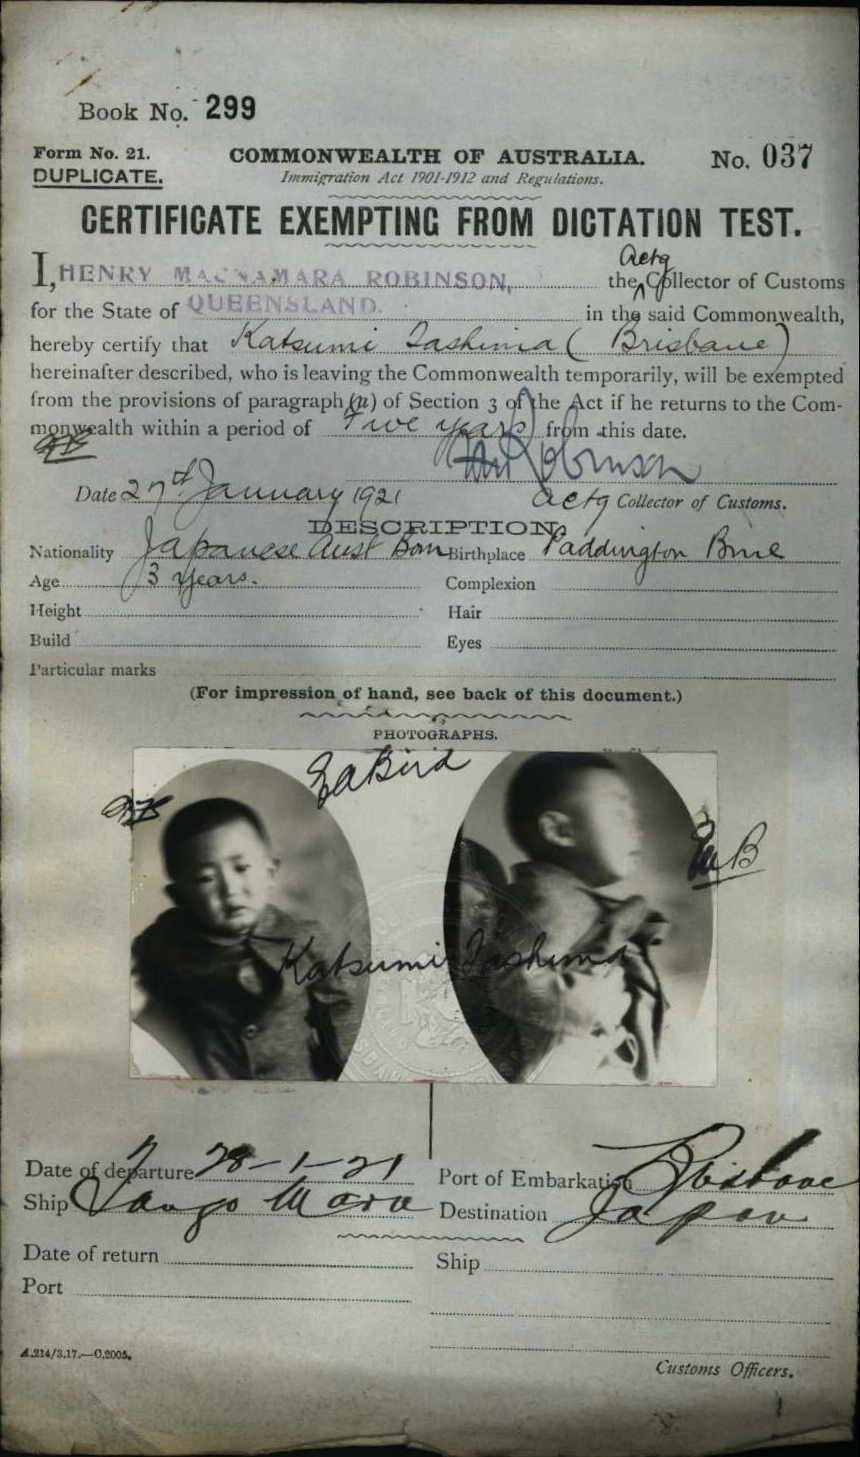 Book No. 299
Form No. 21.
COMMONWEALTH OF AUSTRALIA.
No. 037
DUPLICATE.
Immigration Act 1901-1912 and Regulations.
CERTIFICATE EXEMPTING FROM DICTATION TEST.
Actg
I, HENRY MACNAMARA ROBINSON, the Collector of Customs
for the State of QUEENSLAND. in the said Commonwealth,
hereby certify that Katsumi Tashima (Brisbane)
hereinafter described, who is leaving the Commonwealth temporarily, will be exempted
from the provisions of paragraph (a) of Section 3 of the Act if he returns to the Com-
monwealth within a period of Five years from this date.
HM Robinson
Date 27th January 1921
Actg Collector of Customs.
DESCRIPTION.
Nationality Japanese Aust Born Birthplace Paddington Bne
Age 3 years. Complexion
Height Hair
Build Eyes
Particular marks
(For impression of hand, see back of this document.)
PHOTOGRAPHS.
EABird
Katsumi Tashima
Date of departure 28-1-21 Port of Embarkation Brisbane
Ship Tango Maru Destination Japan
Date of return Ship
Port
A.214/3.17.—C.2005.
Customs Officers.